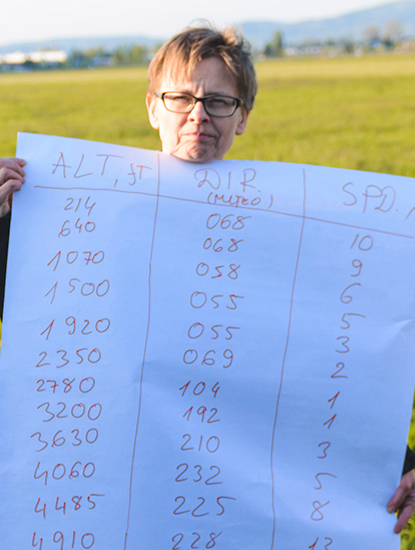 ALT, ft DIR. (METEO) SPD. /
214 068 10
640 068 9
1070 058 6
1500 055 5
1920 055 3
2350 069 2
2780 104 1
3200 192 1
3630 210 3
4060 232 5
4485 225 8
4910 228 13